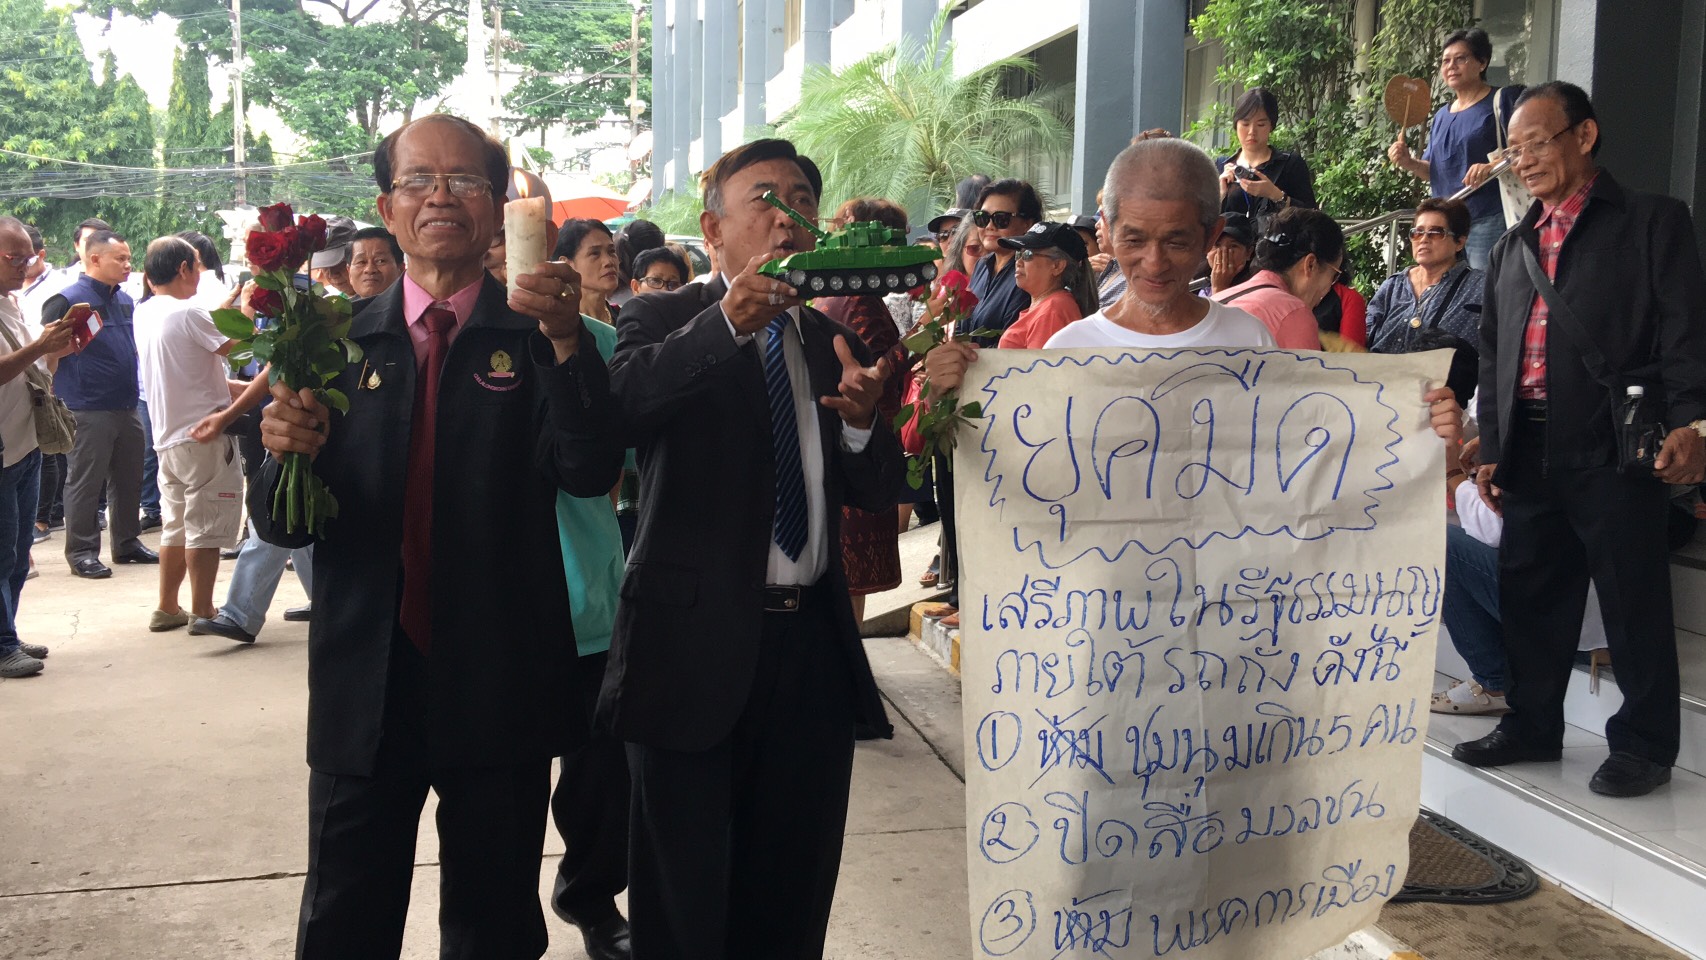 ยุคมืด
เสรีภาพในรัฐธรรมนูญ
ภายใต้ รถถัง ดังนี้
① ห้าม ชุมนุมเกิน 5 คน
② ปิดสื่อมวลชน
③ ห้าม พรรคการเมือง